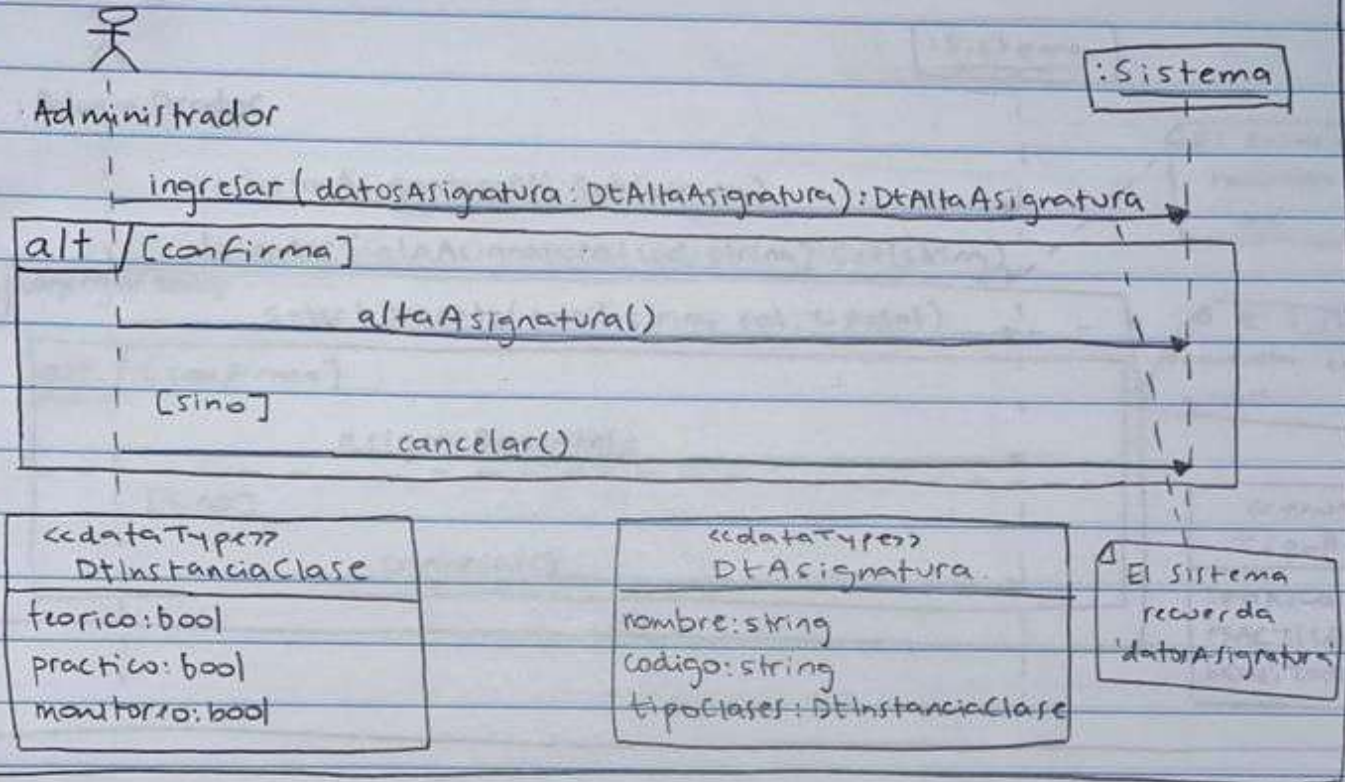 :Sistema
Administrador
ingresar(datosAsignatura:DtAltaAsignatura):DtAltaAsignatura
alt [confirma]
altaAsignatura()
[sino]
cancelar()
<<dataType>>
DtInstanciaClase
teorico:bool
practico:bool
monitoreo:bool
<<dataType>>
DtAsignatura
nombre:string
codigo:string
tipoClases:DtInstanciaClase
El sistema
recuerda
'datosAsignatura'